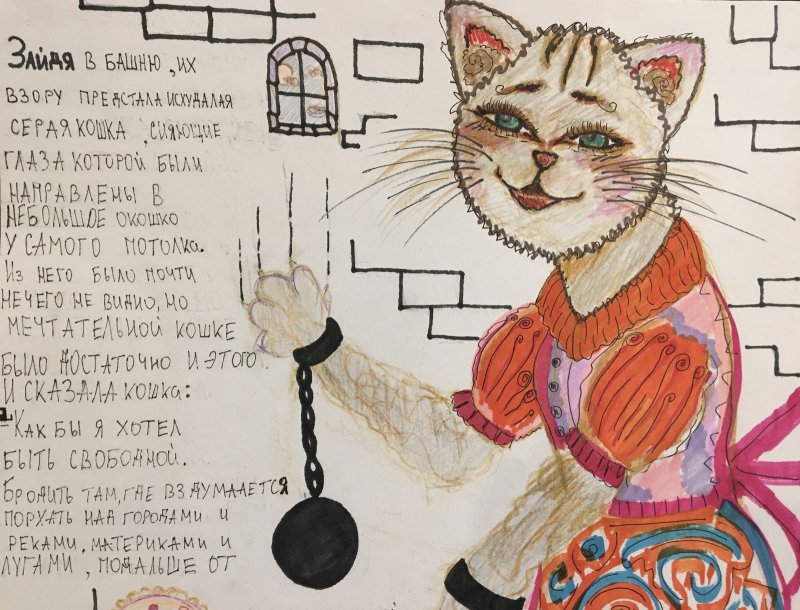 Зайдя в башню, их
взору предстала исхудалая
серая кошка, сияющие
глаза которой были
направлены в
небольшое окошко
у самого потолка.
Из него было почти
нечего не видно, но
мечтательной кошке
было достаточно и этого.
И сказала кошка:
- Как бы я хотел
быть свободной.
Бродить там, где вздумается
порхать над городами и
реками, материками и
лугами, подальше от